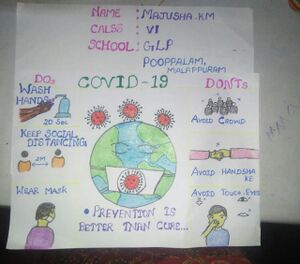 NAME : MAJUSHA.KM
CALSS : VI
SCHOOL : GLP
POOPPALAM,
MALAPPURAM
DOs
COVID-19
DON'TS
WASH
HANDS
20 Sec
KEEP SOCIAL
DISTANCING
2M
WEAR MASK
AVOID CROWD
AVOID HANDSHA
KE
AVOID TOUCH-EYES
• PREVENTION IS
BETTER THAN CURE...